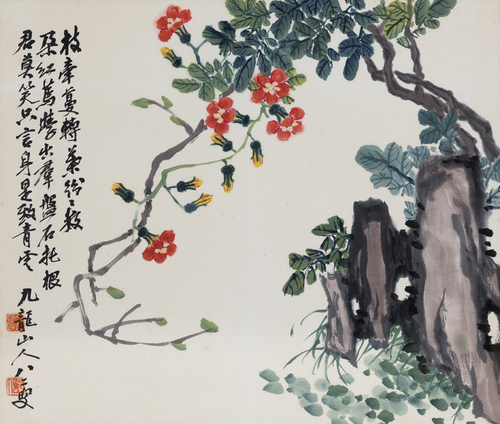 枝牽蔓轉葉紛〻數
朵紅蔫勢出羣盤石托根
君莫笑只言身是致青雲
九龍山人八叟